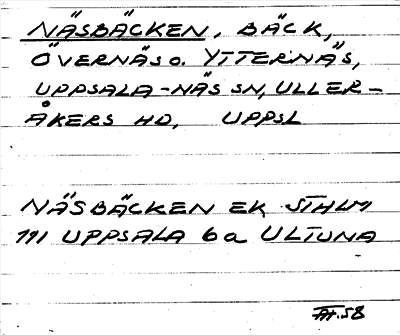 NÄSBÄCKEN, BÄCK,
ÖVERNÄS O. YTTERNÄS,
UPPSALA-NÄS SN, ULLER-
ÅKERS HD, UPPSL
NÄSBÄCKEN EK STHLM
111 UPPSALA 6a ULTUNA
.58